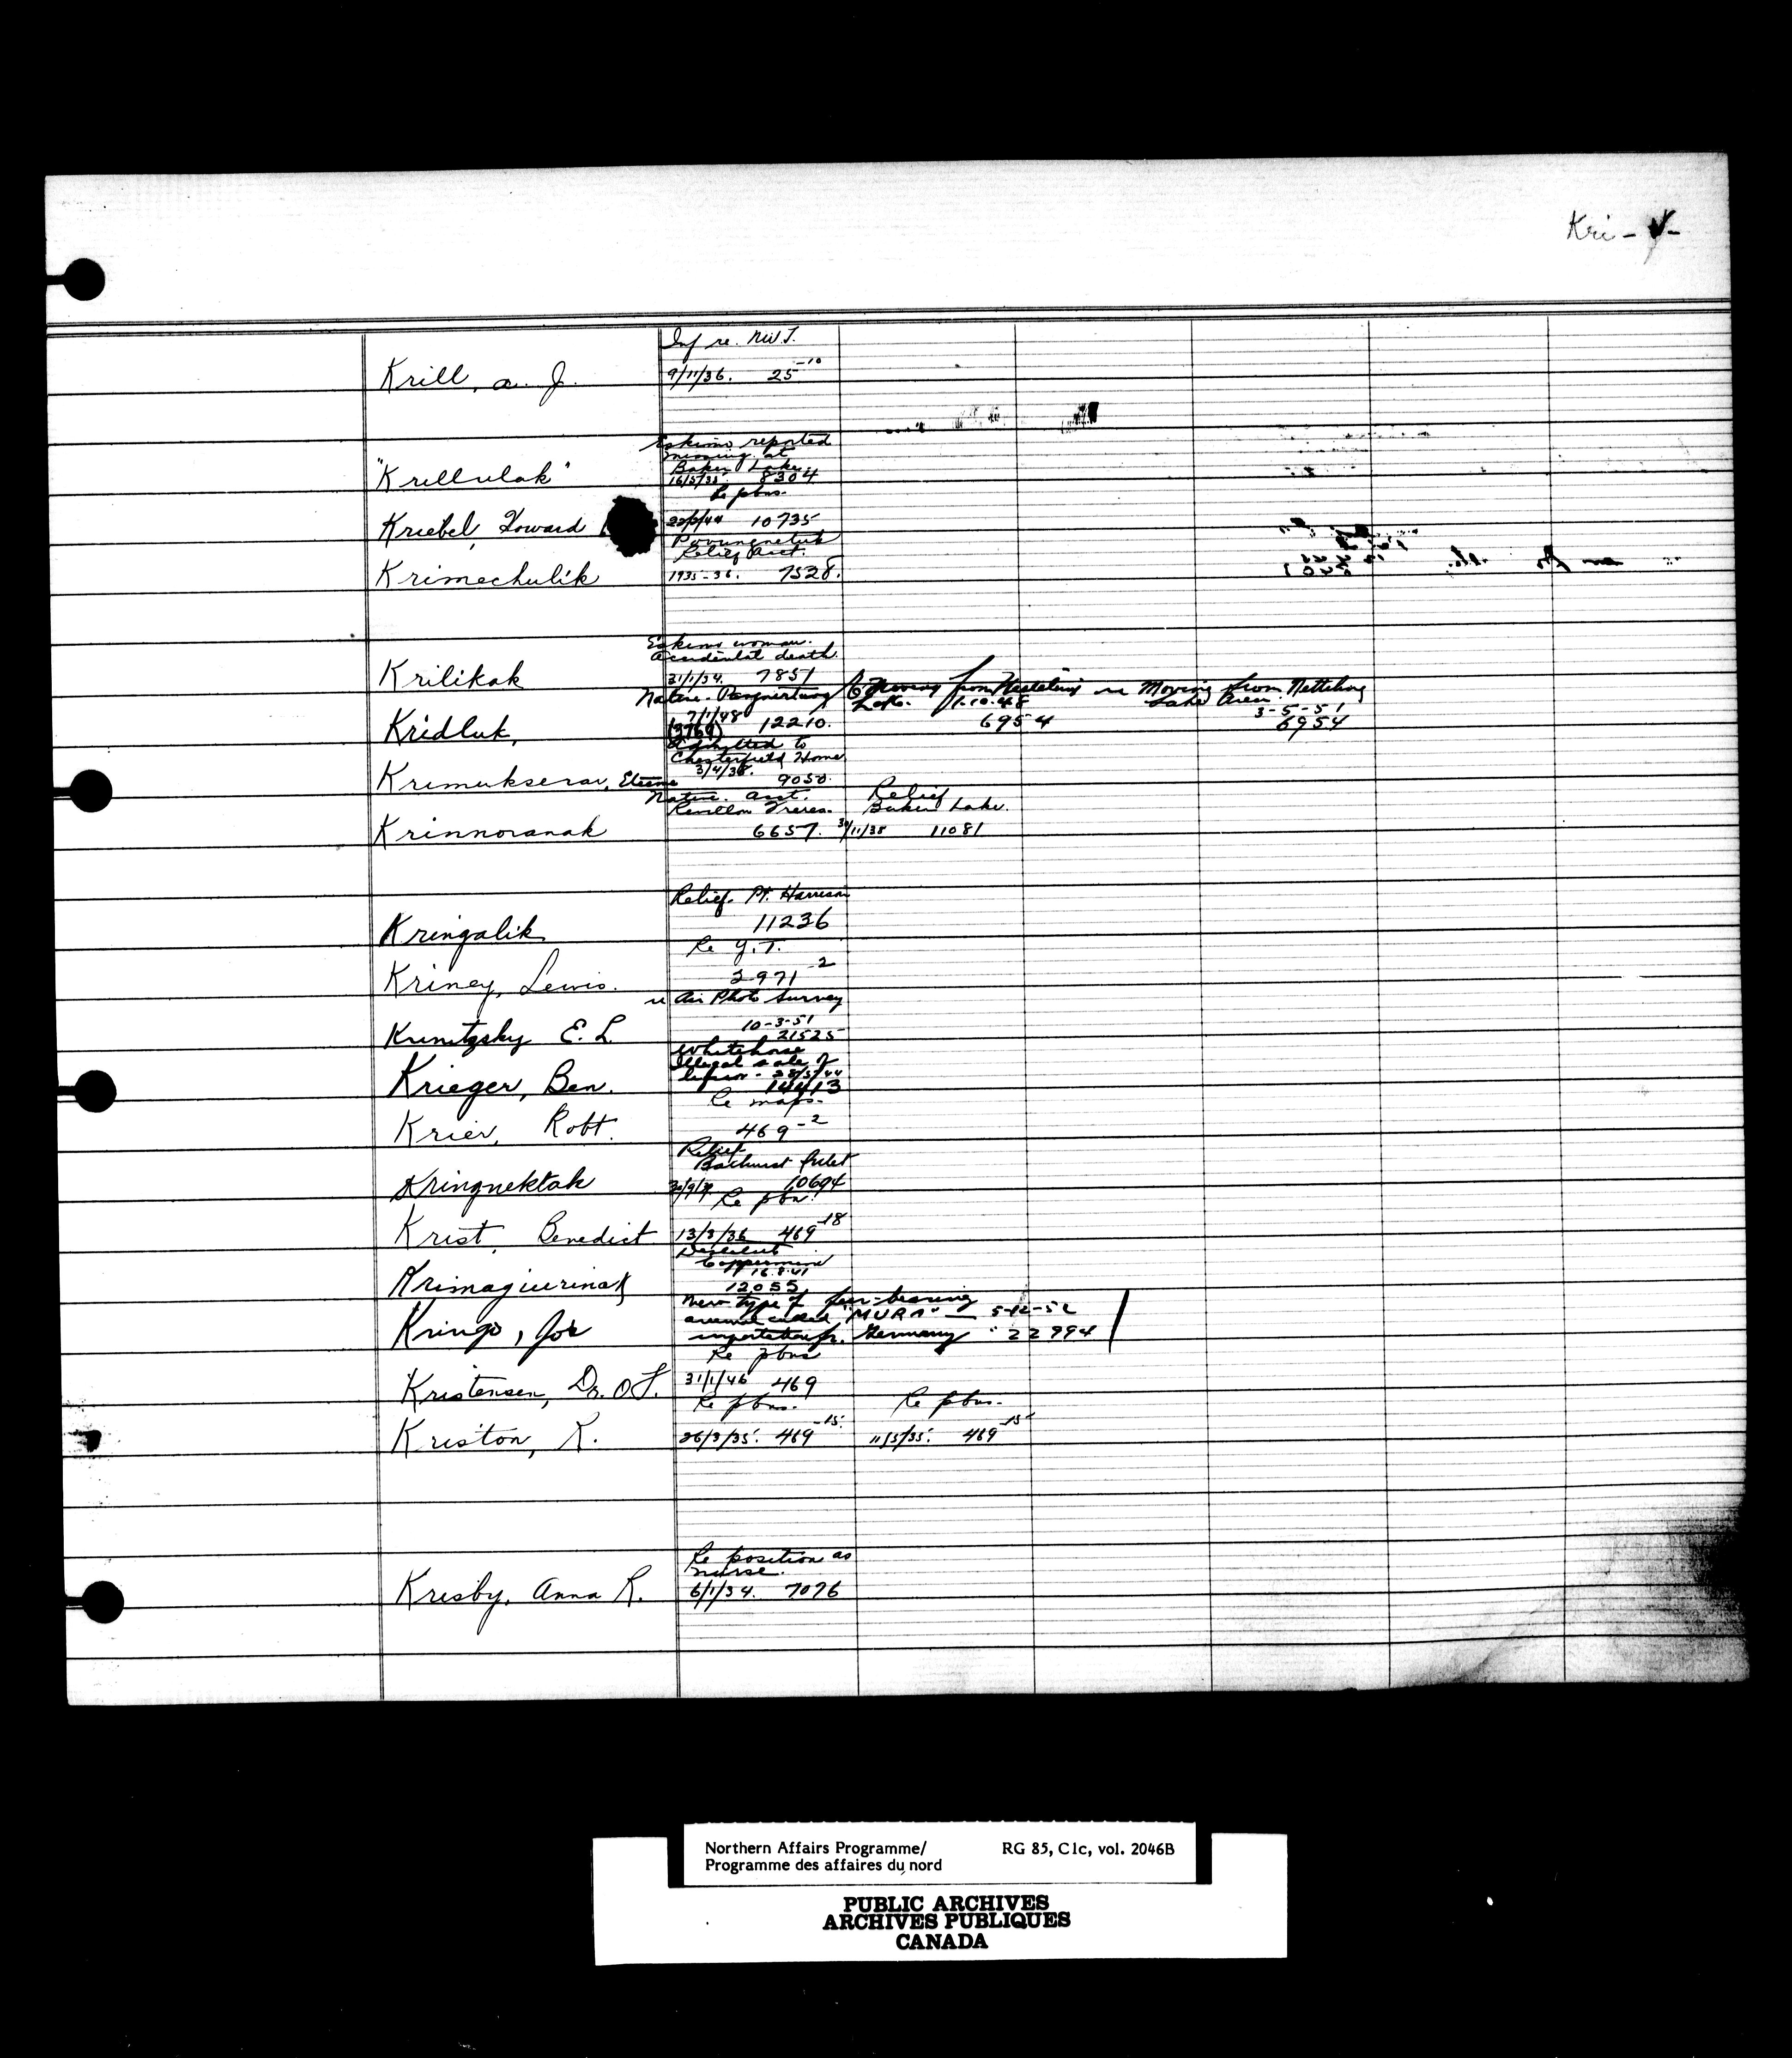 Kri-
Inf re. N.W.T.
Krill, A. J. 9/11/36. 25-10
Eskimo reported
missing at
Baker Lake
"Krillulak" 16/5/38. 8304
Re pbns.
Kriebel, Howard 10735
Povungnetuk
Relief Acct.
Krimechulik 1935-36. 7528.
Eskimo woman.
Accidental death.
Krilikak 31/1/34. 7851
Native - Pangnirtung Moving from re Moving from Nettiling
Lake 1.10.48 Lake Area
7/1/48 3-5-51
Kridluk, 12210. 6954 6954
Admitted to
Chesterfield Home
3/4/38.
Krimukserar, Etienne 9050.
Native. asst. Relief
Revillon Freres. Baker Lake.
Krinnoranak 6657. 30/11/38 11081
Relief. Pt. Harrison
Kringalik 11236
Re Y.T.
Kriney, Lewis. 2971-2
re Air Photo Survey
10-3-51
E. L. 21525
Whitehorse
Illegal sale of
liquor -
Krieger, Ben. 14413
Re maps.
Krier, Robt. 469-2
Relief
Bathurst Inlet
Kringnektak 10694
Re pbn.
Krist, Benedict 13/3/36 469-18
Destitute
Coppermine
16.8.41
Krimagiurinak 12055
New type of fur-bearing
animal called "MURA" - 5-12-52
Kringo, Joe importation fr. Germany - 22994
Re pbns
Kristensen, Dr. O.F. 31/1/46 469
Re pbns. Re pbns.
Kriston, K. 26/3/35. 469-15. 11/5/35. 469-15
Re position as
nurse.
Krisby, Anna R. 6/1/34. 7076
Northern Affairs Programme/ RG 85, C1c, vol. 2046B
Programme des affaires du nord
PUBLIC ARCHIVES
ARCHIVES PUBLIQUES
CANADA